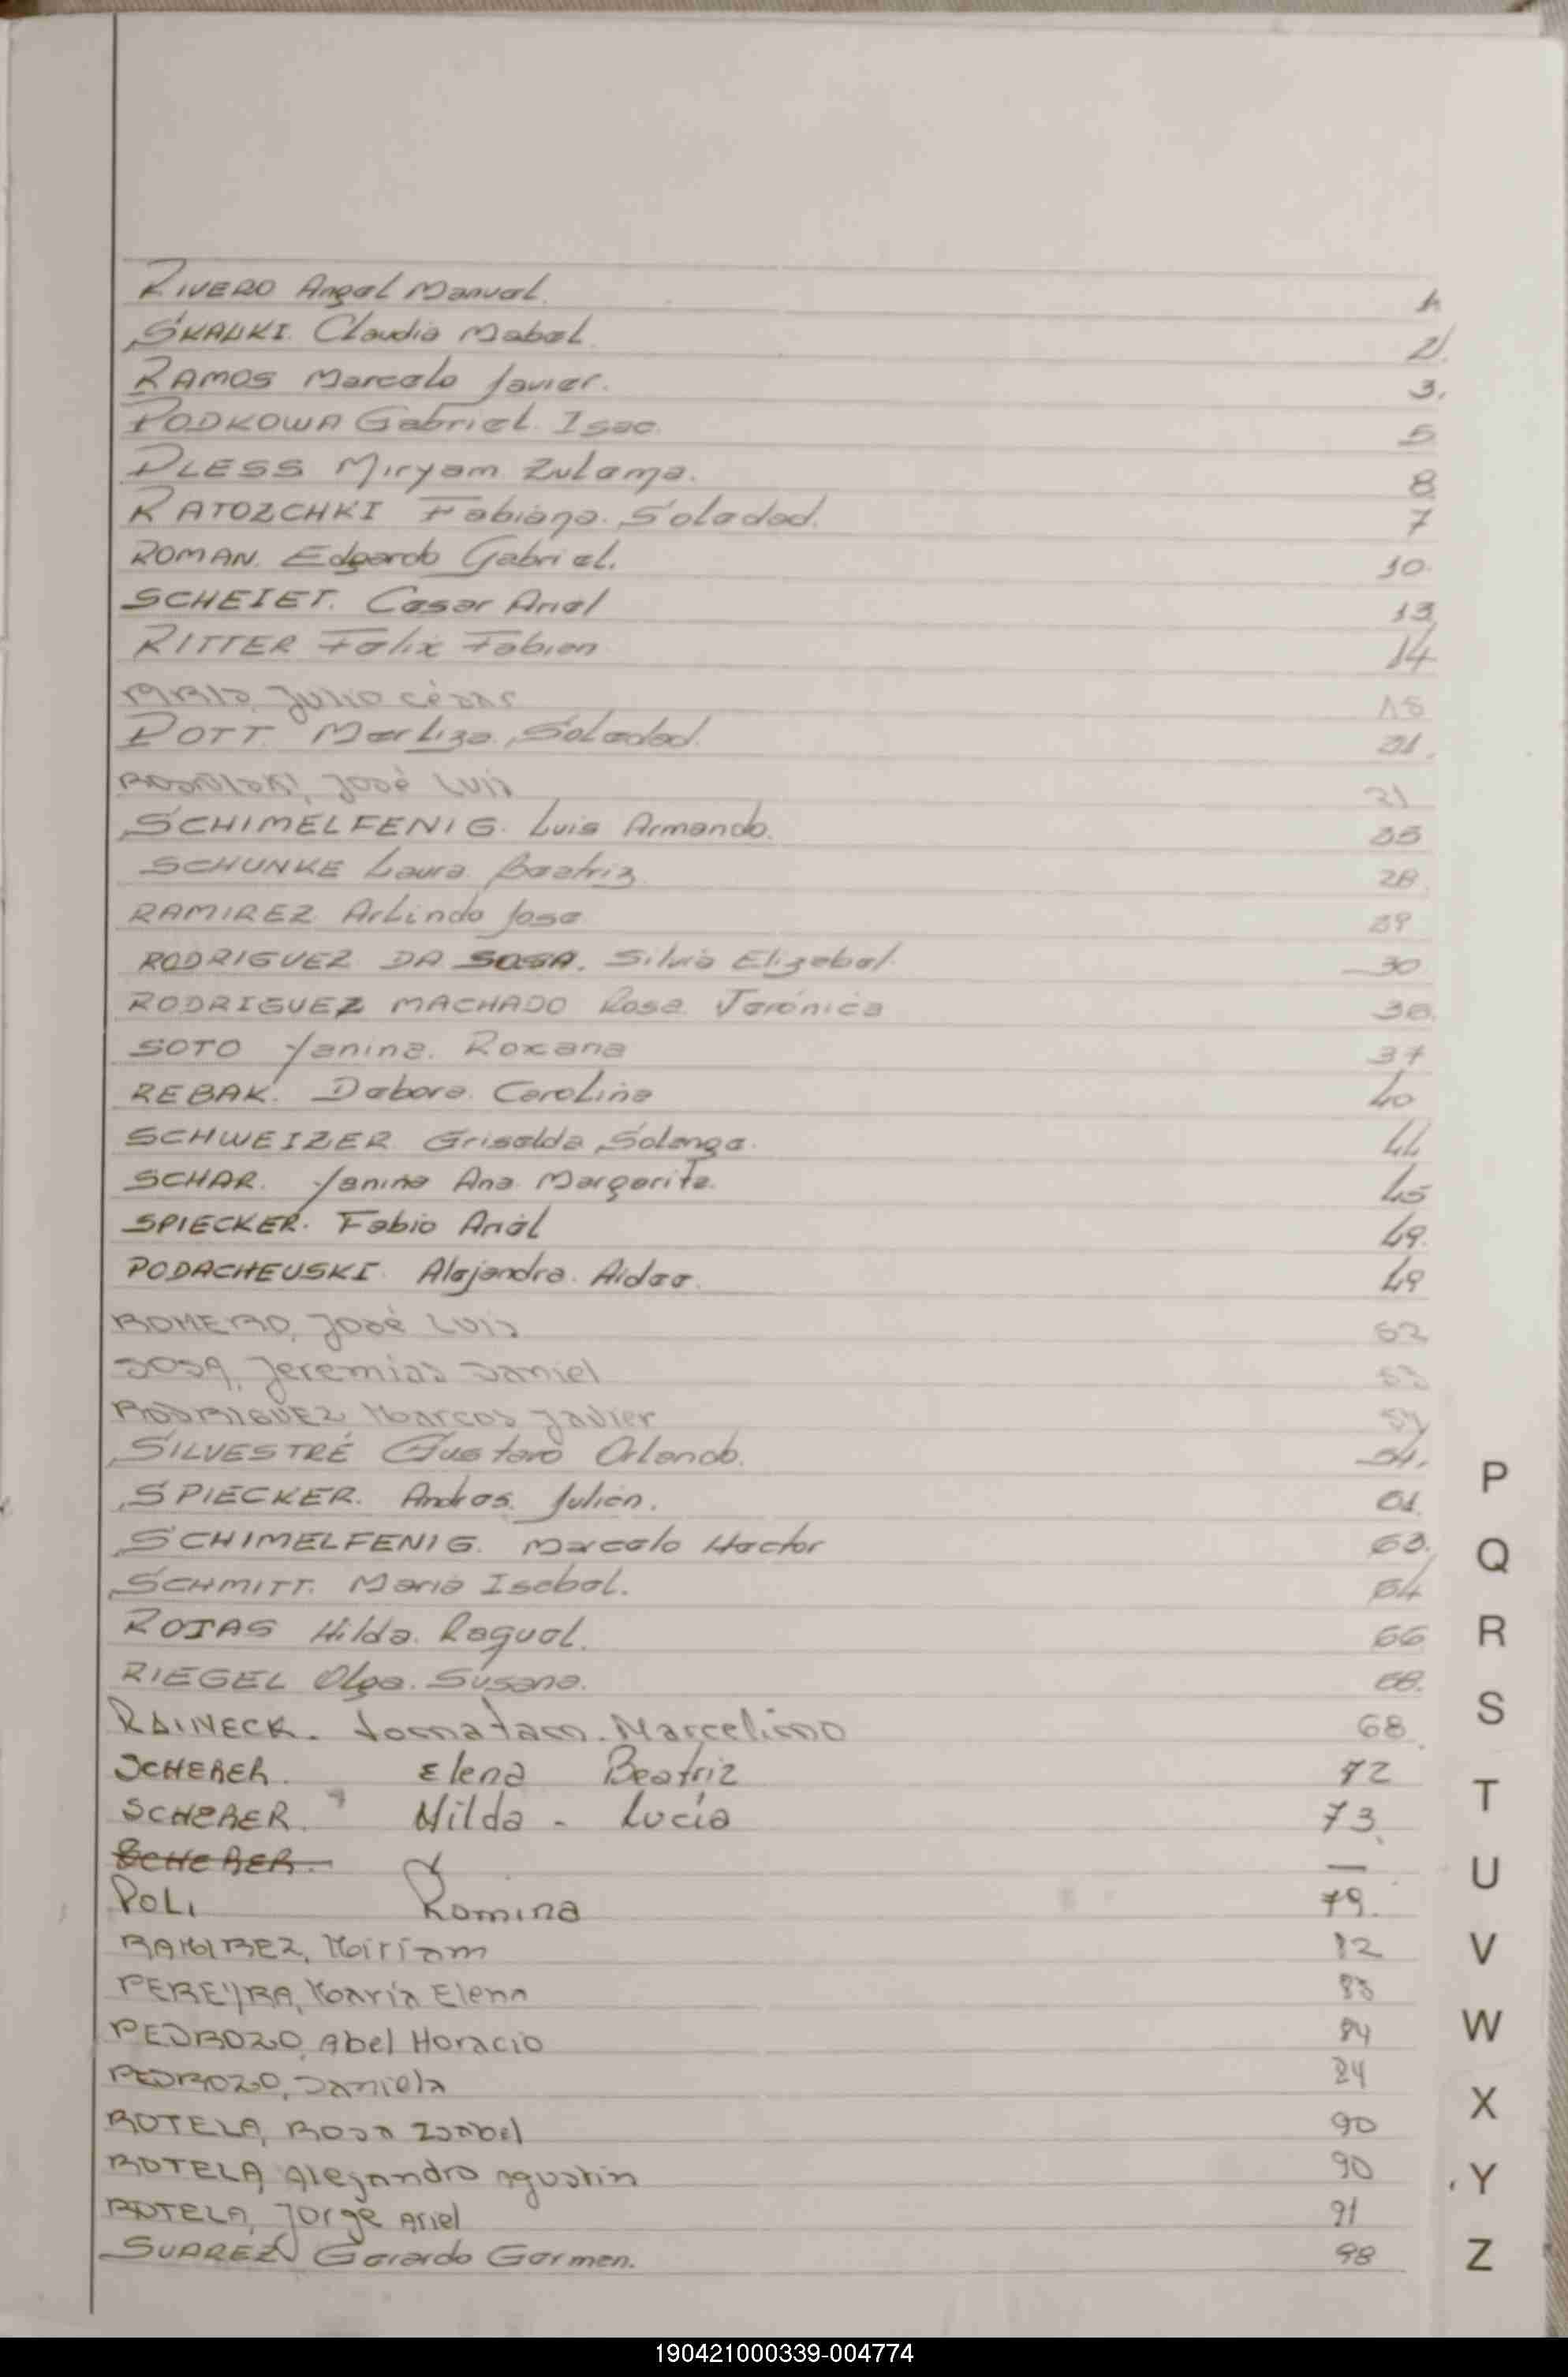 RIVERO Angel Manuel. 1.
SKAUKI. Claudia Mabel. 2.
RAMOS Marcelo Javier. 3.
PODKOWA Gabriel. Isac. 5
PLESS Miryam Zulema. 8
RATOZCHKI Fabiana. Soledad. 7
ROMAN. Edgardo Gabriel. 10.
SCHEIET. Cesar Ariel 13
RITTER Felix Fabian 14
Julio César 15
POTT. Marliza. Soledad. 21.
José Luis 21
SCHIMELFENIG. Luis Armando. 25
SCHUNKE Laura Beatriz 28
RAMIREZ Arlindo Jose 29
RODRIGUEZ DA SOSA. Silvia Elizabet. 30
RODRIGUEZ MACHADO Rosa. Verónica 36.
SOTO Yanina. Roxana 37
REBAK. Debora. Carolina 40
SCHWEIZER Griselda Solange. 44
SCHAR. Yanina Ana Margarita. 45
SPIECKER. Fabio Ariel 49.
PODACHEUSKI Alejandra. Aidee. 49
ROMERO, José Luis 52
SOSA, Jeremias Daniel 53
RODRIGUEZ Marcos Javier 54
SILVESTRÉ Gustavo Orlando. 54.
SPIECKER. Andres. Julian. 61.
SCHIMELFENIG. Marcelo Hector 63.
SCHMITT. Maria Isabel. 64
ROJAS Hilda. Raquel. 66
RIEGEL Olga. Susana. 68.
RAINECK. Jonatan. Marcelino 68
SCHERER. Elena Beatriz 72
SCHERER. Nilda - Lucia 73
SCHERER. —
POLI Romina 79.
RAMIREZ, Miriam 82
PEREYRA, María Elena 83
PEDROZO, Abel Horacio 84
PEDROZO, Daniela 84
ROTELA, Rosa Isabel 90
ROTELA Alejandro Agustin 90
ROTELA, Jorge Ariel 91
SUAREZ Gerardo German. 98
P
Q
R
S
T
U
V
W
X
Y
Z
190421000339-004774